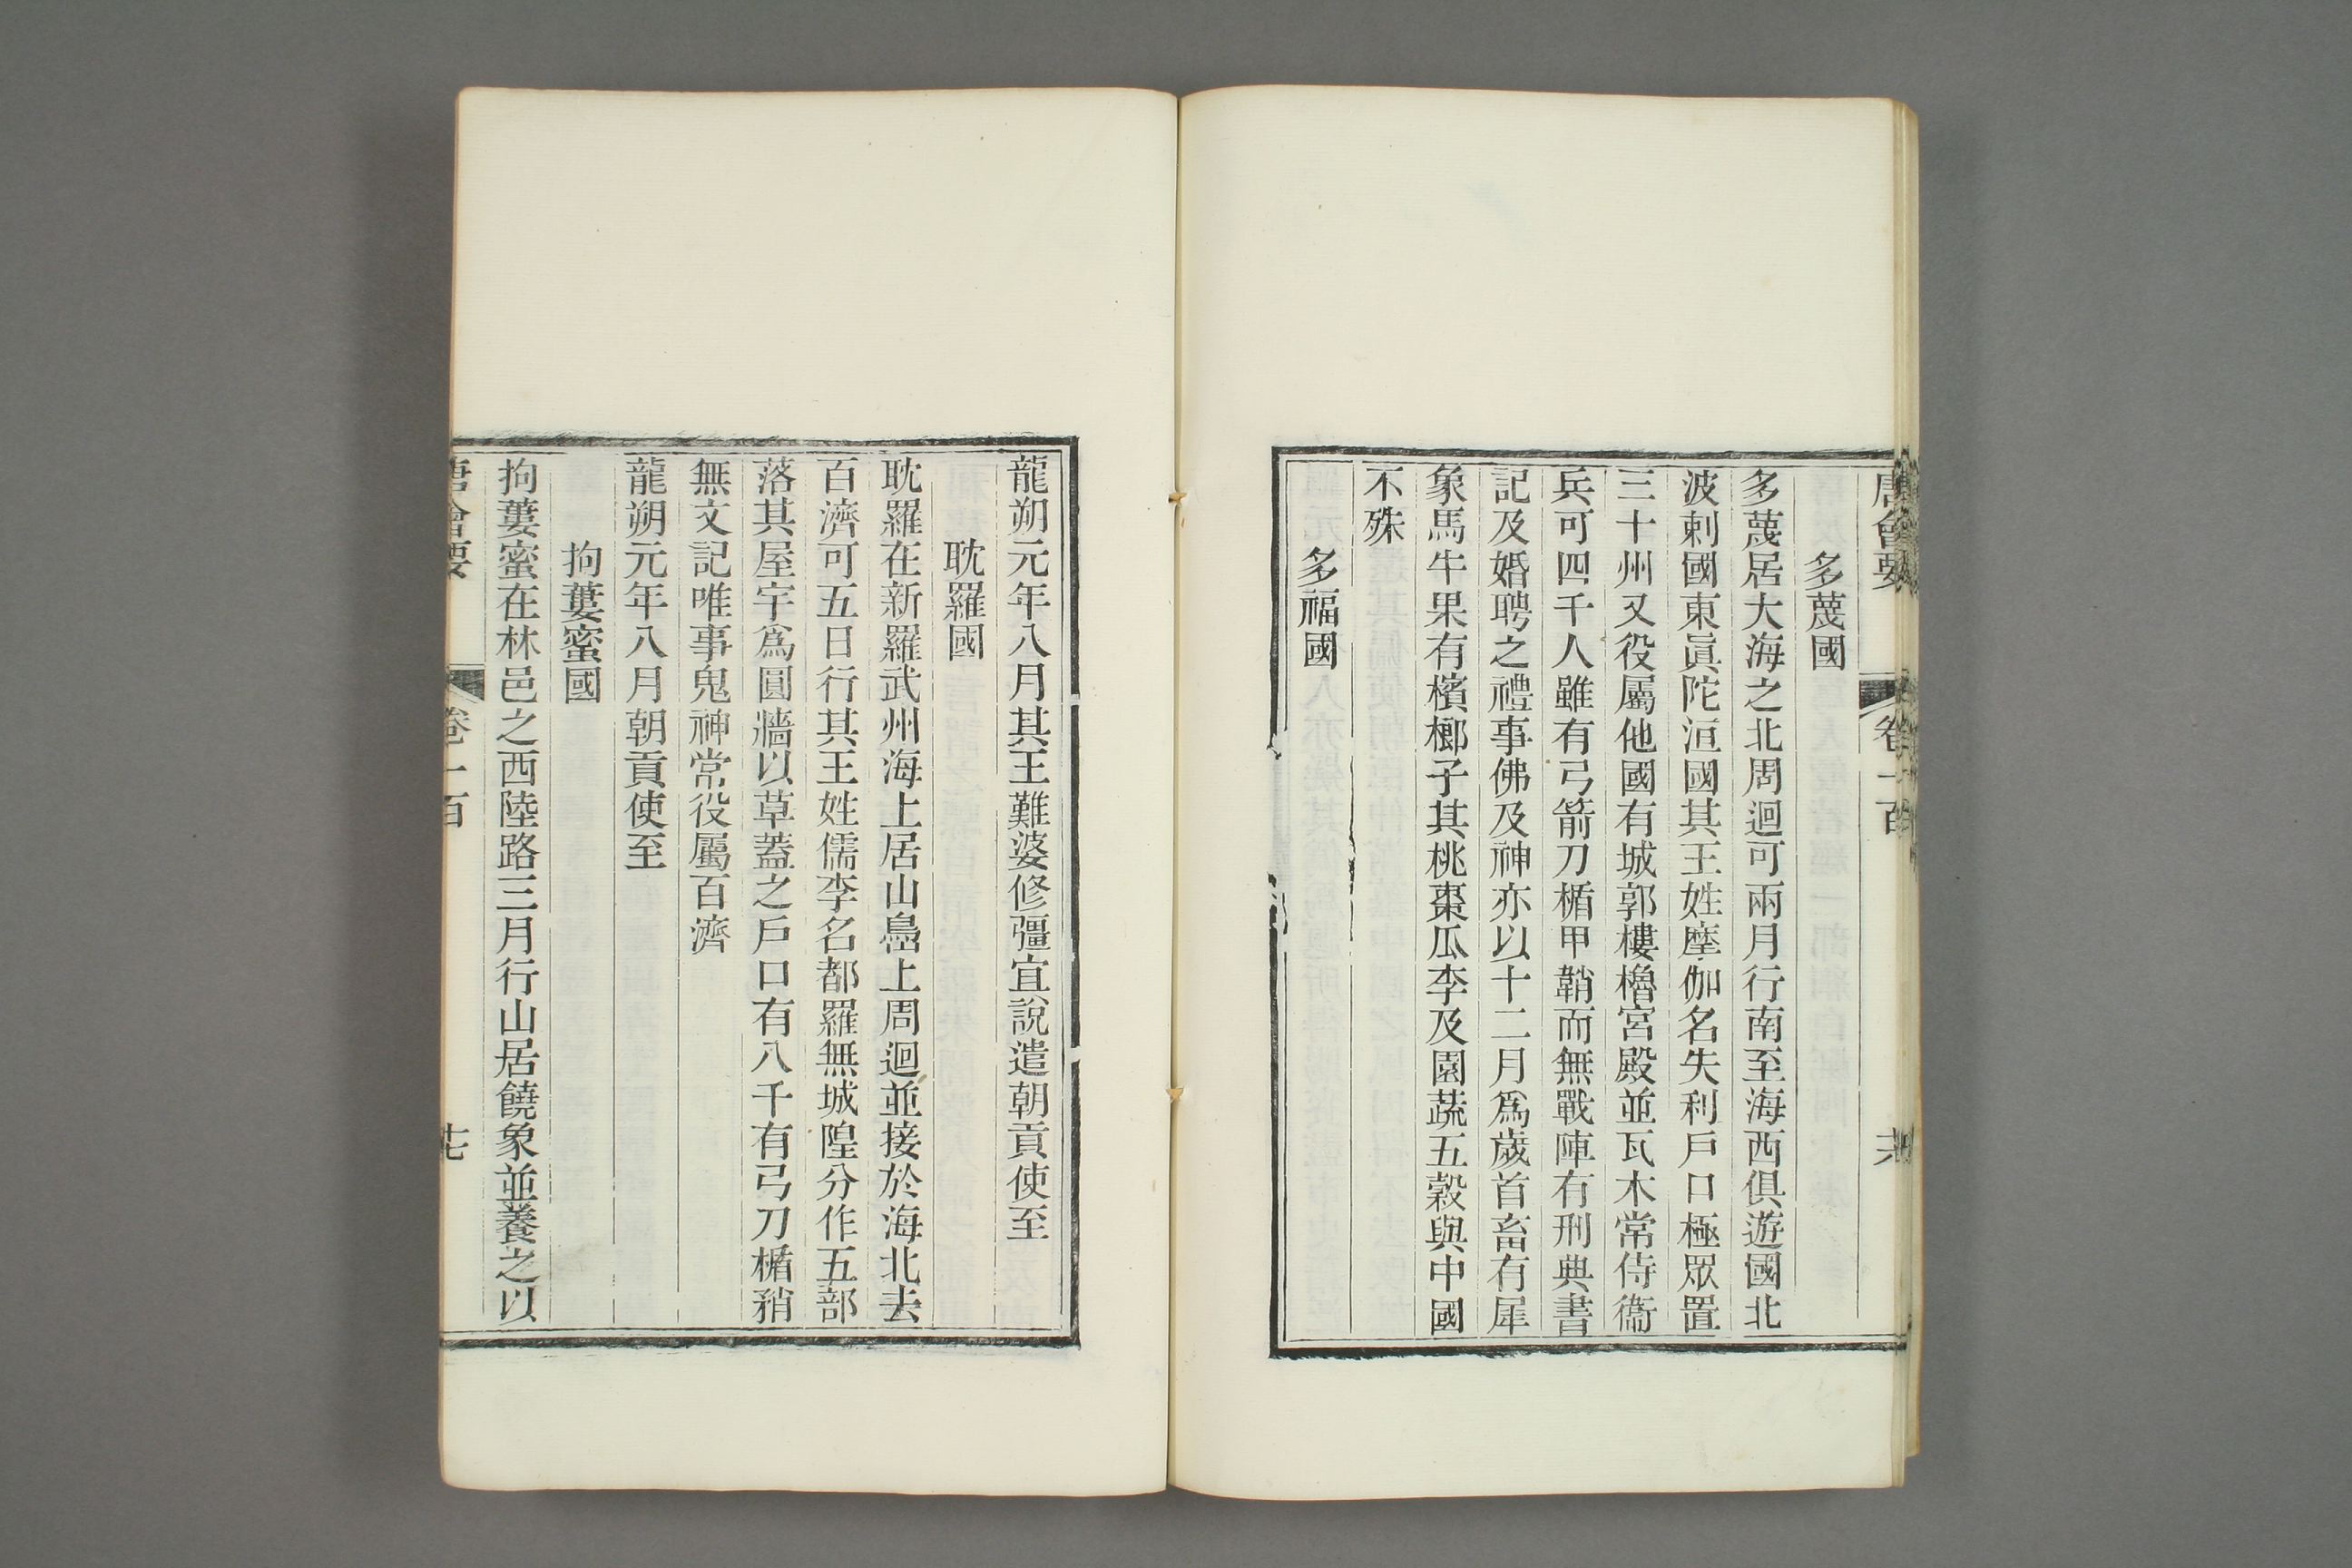 唐會要 卷一百 六
多蔑國
多蔑居大海之北周迴可兩月行南至海西俱遊國北
波剌國東眞陀洹國其王姓摩伽名失利戶口極眾置
三十州又役屬他國有城郭樓櫓宮殿並瓦木常侍衞
兵可四千人雖有弓箭刀楯甲鞘而無戰陣有刑典書
記及婚聘之禮事佛及神亦以十二月爲歲首畜有犀
象馬牛果有檳榔子其桃棗瓜李及園蔬五穀與中國
不殊
多福國
龍朔元年八月其王難婆修彊宜說遣朝貢使至
耽羅國
耽羅在新羅武州海上居山島上周迴並接於海北去
百濟可五日行其王姓儒李名都羅無城隍分作五部
落其屋宇爲圓牆以草蓋之戶口有八千有弓刀楯矟
無文記唯事鬼神常役屬百濟
龍朔元年八月朝貢使至
拘蔞蜜國
拘蔞蜜在林邑之西陸路三月行山居饒象並養之以
唐會要 卷一百 七